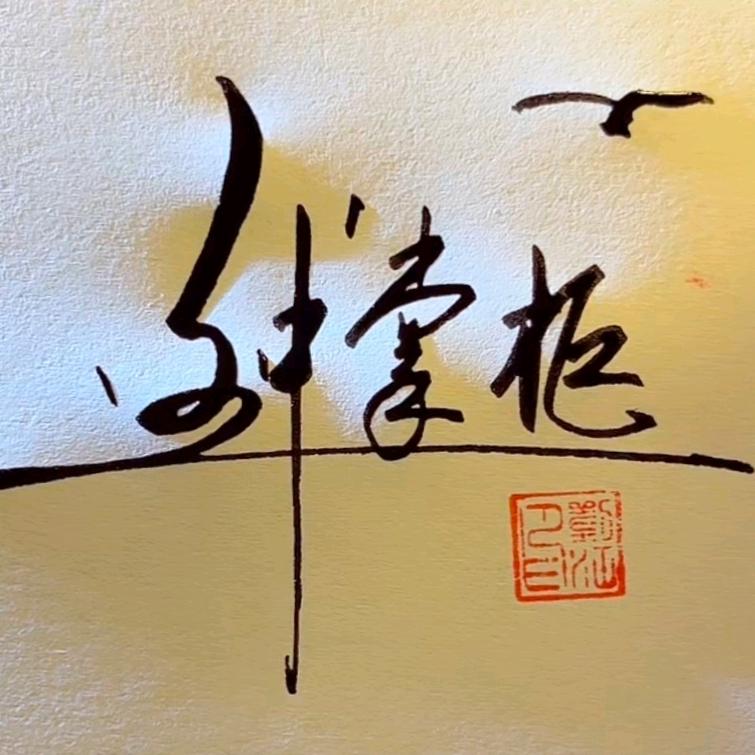 钟掌柜